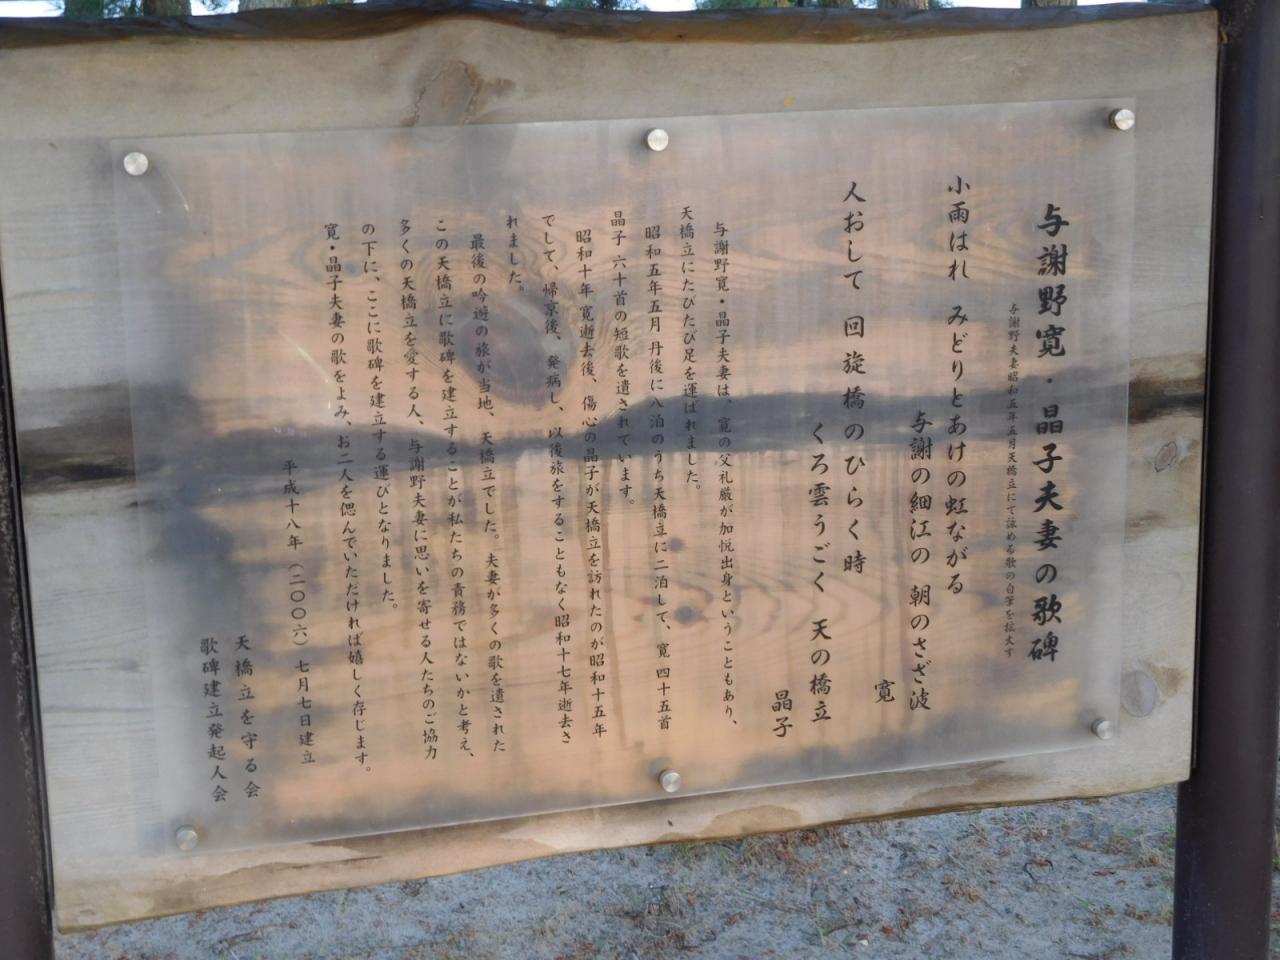 与謝野寛・晶子夫妻の歌碑
与謝野夫妻昭和五年五月天橋立にて詠める歌の自筆を拡大す
小雨はれ　みどりとあけの虹ながる
与謝の細江の　朝のさざ波
寛
人おして　回旋橋のひらく時
くろ雲うごく　天の橋立
晶子
与謝野寛・晶子夫妻は、寛の父礼厳が加悦出身ということもあり、
天橋立にたびたび足を運ばれました。
昭和五年五月 丹後に八泊のうち天橋立に二泊して、寛 四十五首
晶子 六十首の短歌を遺されています。
昭和十年 寛逝去後、傷心の晶子が天橋立を訪れたのが昭和十五年
でして、帰京後、発病し、以後旅をすることもなく昭和十七年逝去さ
れました。
最後の吟遊の旅が当地、天橋立でした。夫妻が多くの歌を遺された
この天橋立に歌碑を建立することが私たちの責務ではないかと考え、
多くの天橋立を愛する人、与謝野夫妻に思いを寄せる人たちのご協力
の下に、ここに歌碑を建立する運びとなりました。
寛・晶子夫妻の歌をよみ、お二人を偲んでいただければ嬉しく存じます。
平成十八年（二〇〇六）七月七日建立
天橋立を守る会
歌碑建立発起人会